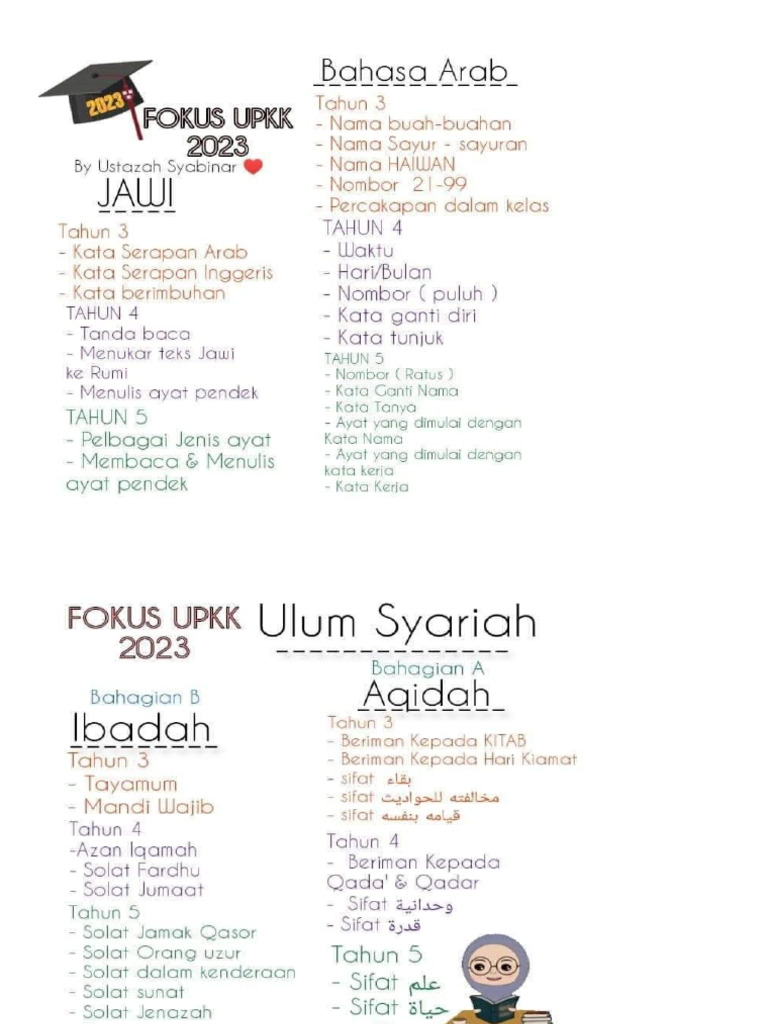 2023
FOKUS UPKK
2023
By Ustazah Syabinar ❤️
JAWI
Tahun 3
- Kata Serapan Arab
- Kata Serapan Inggeris
- Kata berimbuhan
TAHUN 4
- Tanda baca
- Menukar teks Jawi
ke Rumi
- Menulis ayat pendek
TAHUN 5
- Pelbagai Jenis ayat
- Membaca & Menulis
ayat pendek
Bahasa Arab
Tahun 3
- Nama buah-buahan
- Nama Sayur - sayuran
- Nama HAIWAN
- Nombor 21-99
- Percakapan dalam kelas
TAHUN 4
- Waktu
- Hari/Bulan
- Nombor ( puluh )
- Kata ganti diri
- Kata tunjuk
TAHUN 5
- Nombor ( Ratus )
- Kata Ganti Nama
- Kata Tanya
- Ayat yang dimulai dengan
Kata Nama
- Ayat yang dimulai dengan
kata kerja
- Kata Kerja
FOKUS UPKK
2023
Ulum Syariah
Bahagian B
Ibadah
Tahun 3
- Tayamum
- Mandi Wajib
Tahun 4
-Azan Iqamah
- Solat Fardhu
- Solat Jumaat
Tahun 5
- Solat Jamak Qasor
- Solat Orang uzur
- Solat dalam kenderaan
- Solat sunat
- Solat Jenazah
Bahagian A
Aqidah
Tahun 3
- Beriman Kepada KITAB
- Beriman Kepada Hari Kiamat
- sifat بقاء
- sifat مخالفته للحواديث
- sifat قيامه بنفسه
Tahun 4
- Beriman Kepada
Qada' & Qadar
- Sifat وحدانية
- Sifat قدرة
Tahun 5
- Sifat علم
- Sifat حياة